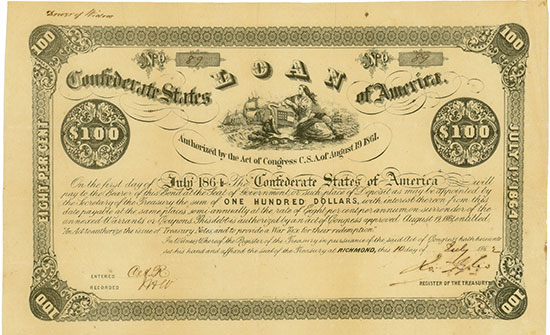 Dower of Widow
100 100
No 89 LOAN No 89
Confederate States of America.
Authorized by the Act of Congress C.S.A. of August 19 1861.
$100 $100
EIGHT PER CENT
JULY 1st 1864
On the first day of July 1864 The Confederate States of America will
pay to the Bearer of this Bond at the Seat of Government or at such place of Deposit as may be appointed by
the Secretary of the Treasury the sum of ONE HUNDRED DOLLARS, with interest thereon from this
date payable at the same place semi annually at the rate of Eight per cent per annum on surrender of the
annexed Warrants or Coupons. This Bond is authorized by an act of Congress approved August 19 1861 entitled.
"An Act to authorize the issue of Treasury Notes and to provide a War Tax for their redemption."
In witness whereof the Register of the Treasury in pursuance of the said Act of Congress hath hereunto
set his hand and affixed the seal of the Treasury at RICHMOND, this 10 day of July 1862
ENTERED
RECORDED
REGISTER OF THE TREASURY
100 100